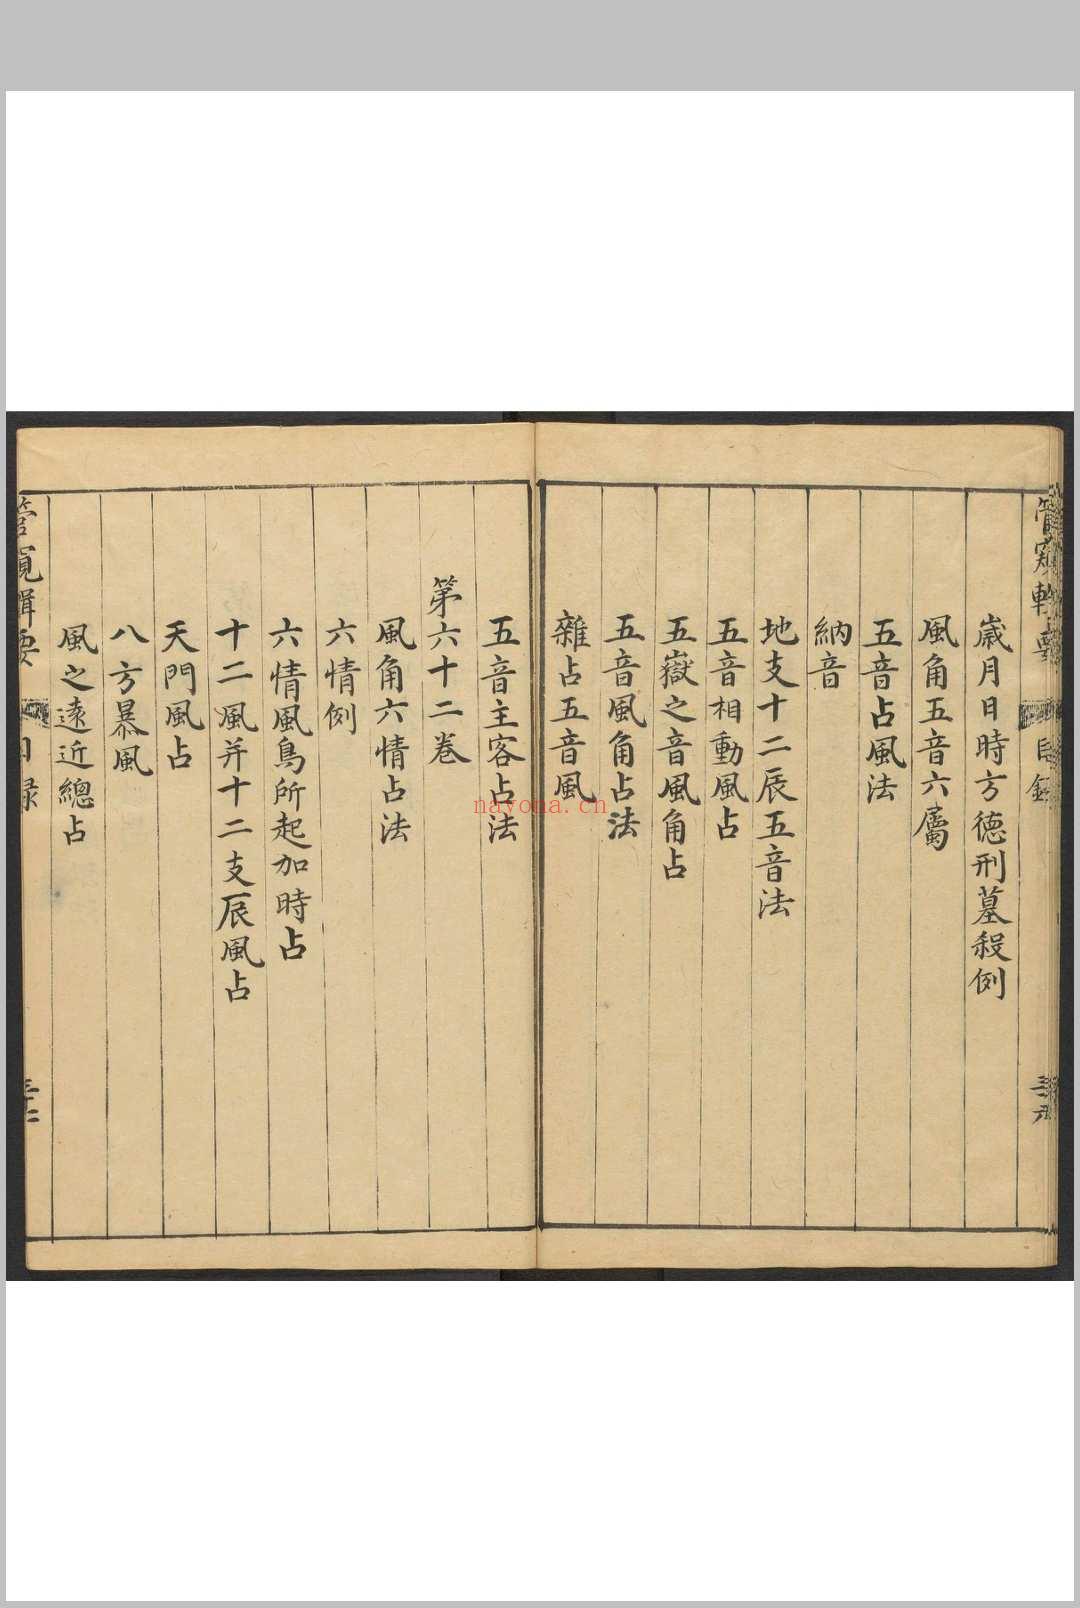 歲月日時方德刑墓殺例
風角五音六屬
五音占風法
納音
地支十二辰五音法
五音相動風占
五嶽之音風角占
五音風角占法
雜占五音風
五音主客占法
第六十二卷
風角六情占法
六情例
六情風鳥所起加時占
十二風并十二支辰風占
天門風占
八方暴風
風之遠近總占
nayona.cn